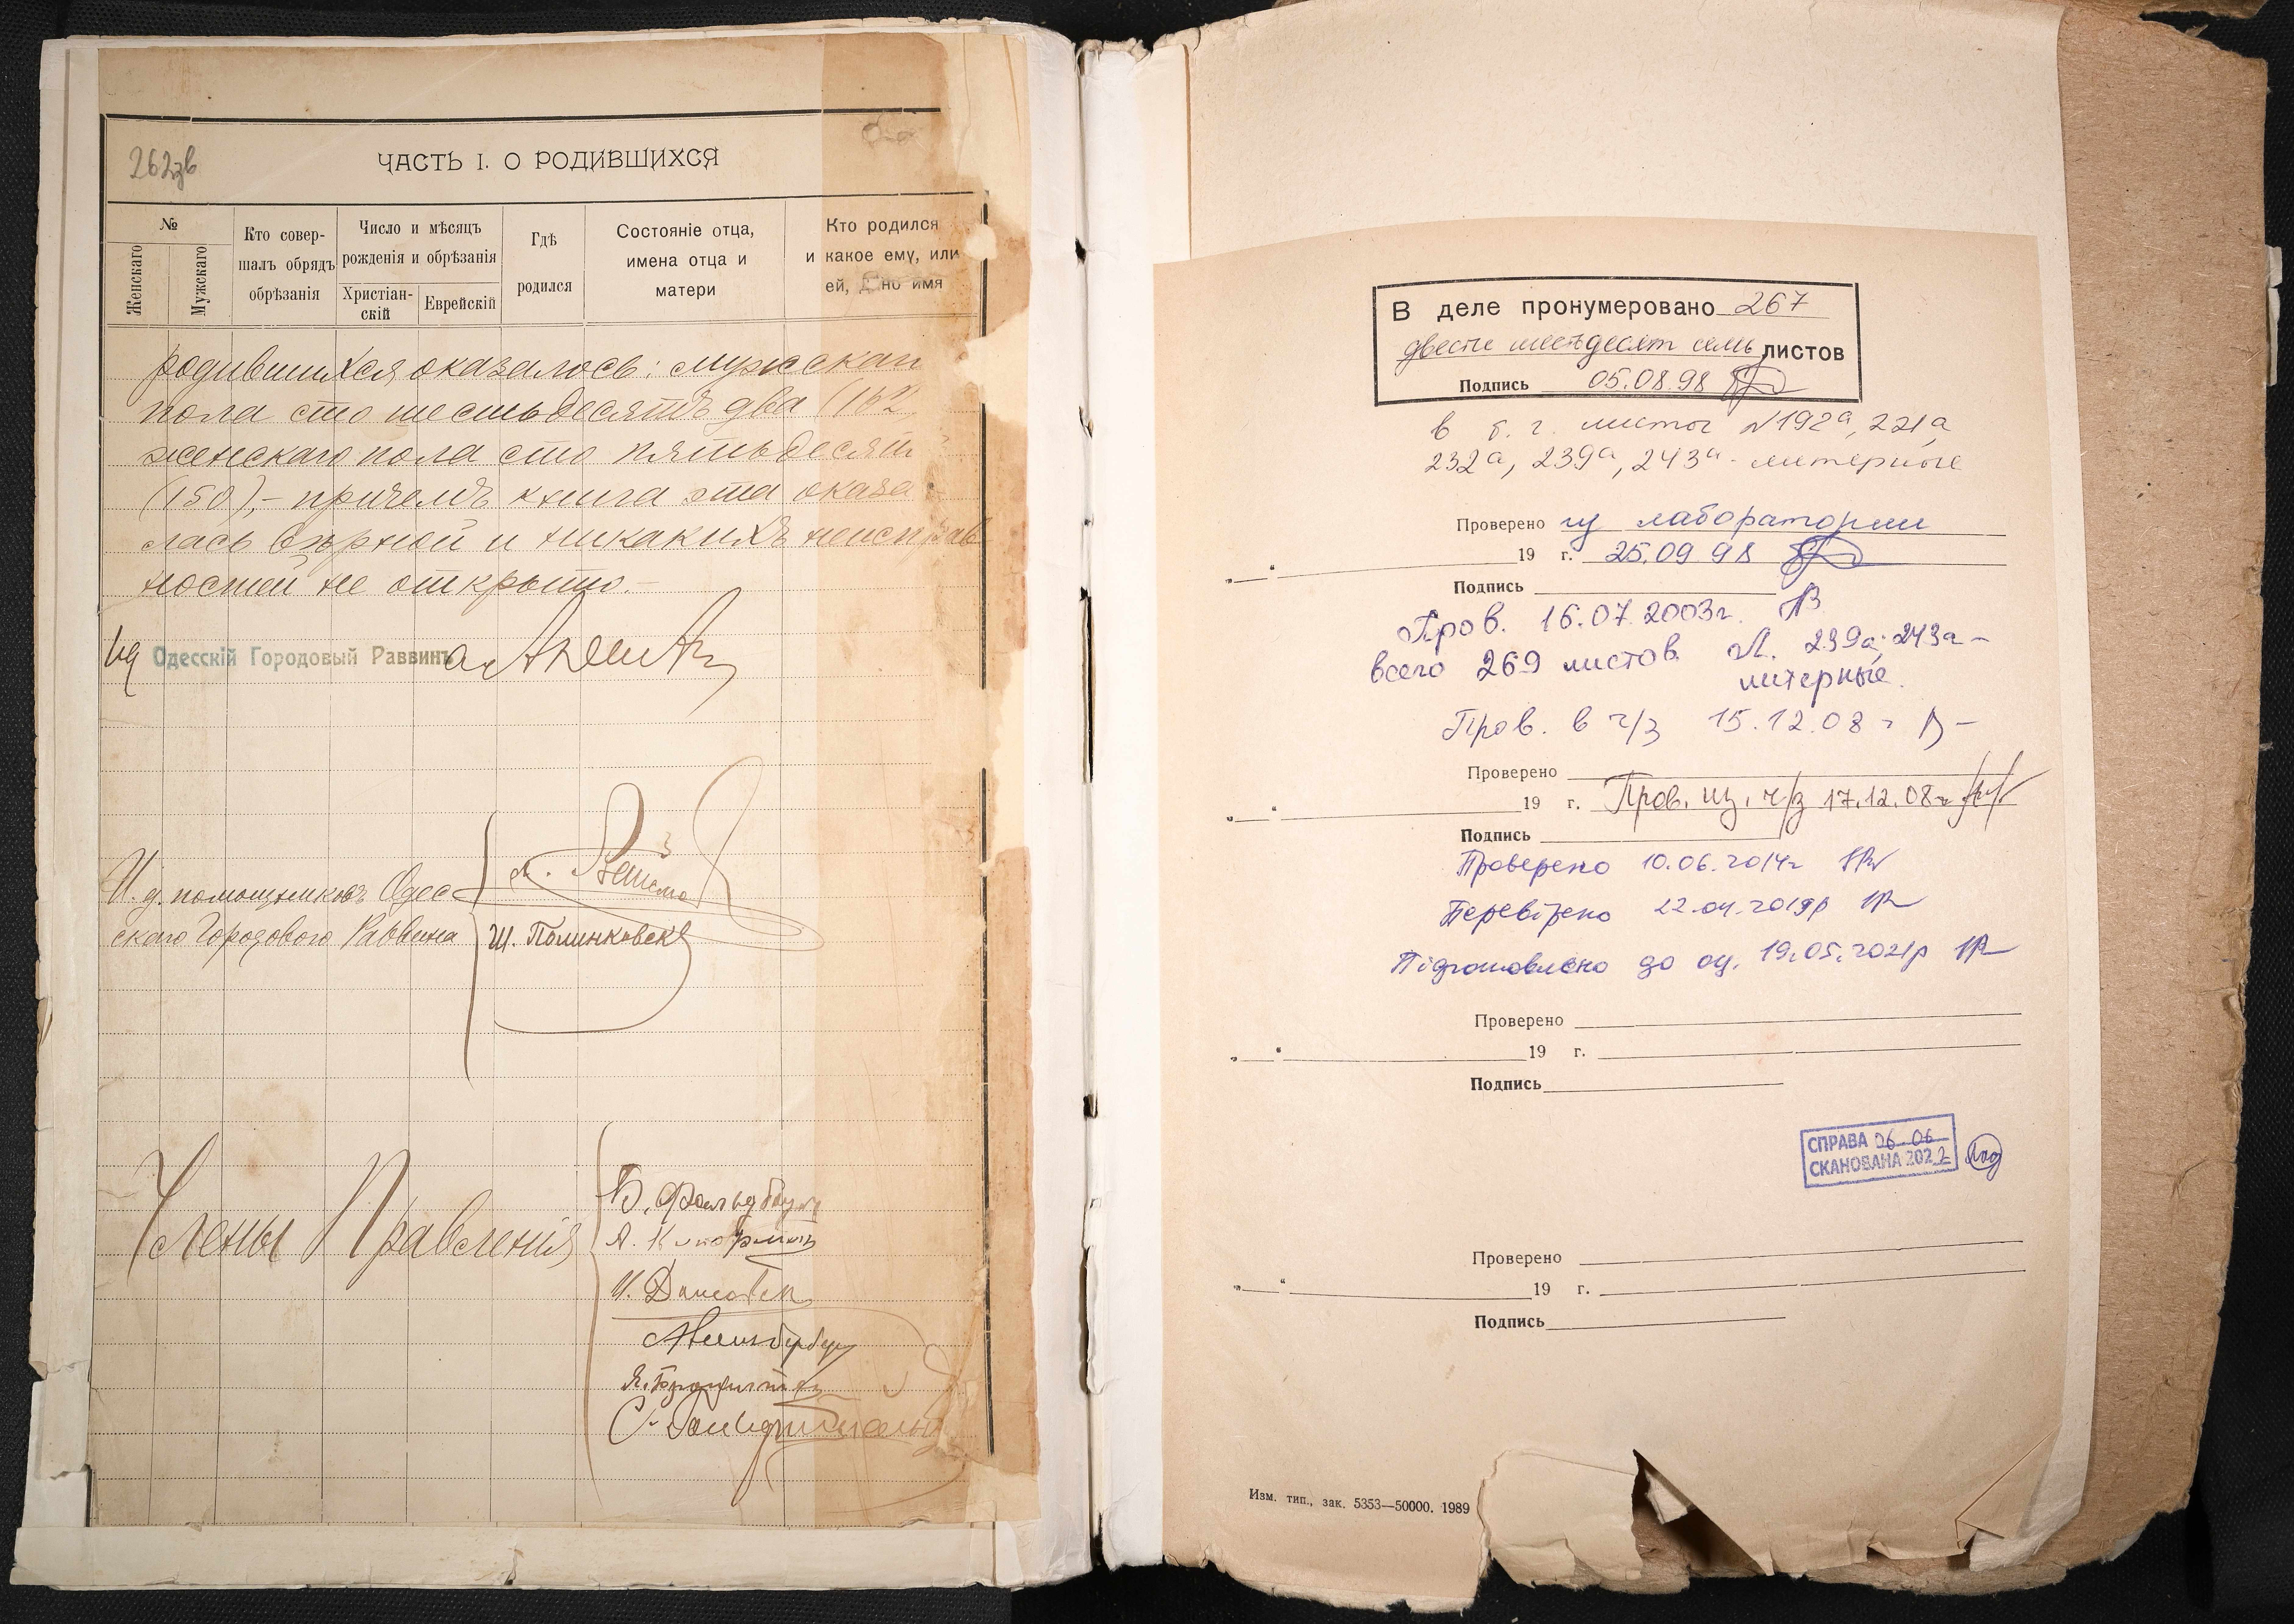 262зв
ЧАСТЬ I. О РОДИВШИХСЯ
№
Женскаго
Мужскаго
Кто совер-
шалъ обрядъ
обрѣзанія
Число и мѣсяцъ
рожденія и обрѣзанія
Христіан-
скій
Еврейскій
Гдѣ
родился
Состояніе отца,
имена отца и
матери
Кто родился
и какое ему, или
ей, но имя
родившихся оказалось: мужскаго
пола сто шестьдесятъ два (162
женскаго пола сто пятьдесят
(150),- причемъ книга эта оказа
лась вѣрной и никакихъ неисправ
ностей не открыто.-
Ид Одесскій Городовый Раввинъ
И. д. помощниковъ Одес
скаго Городового Раввина
Ш. Полинковск
Члены Правленія
В деле пронумеровано 267
двести шестьдесят семь листов
Подпись 05.08.98
в т. ч. листы №192а, 221а,
232а, 239а, 243а - литерные
Проверено из лаборатории
„ “ 19 г. 25.09.98
Подпись
Пров. 16.07.2003г.
всего 269 листов Л. 239а; 243а -
литерные.
Пров. в ч/з 15.12.08 г
Проверено
„ “ 19 г. Пров. из. ч/з 17.12.08г
Подпись
Проверено 10.06.2014г
Перевірено 22.04.2019р
Підготовлено до оц. 19.05.2021р
Проверено
„ “ 19 г.
Подпись
СПРАВА 06.06
СКАНОВАНА 2022
Проверено
„ “ 19 г.
Подпись
Изм. тип., зак. 5353—50000. 1989